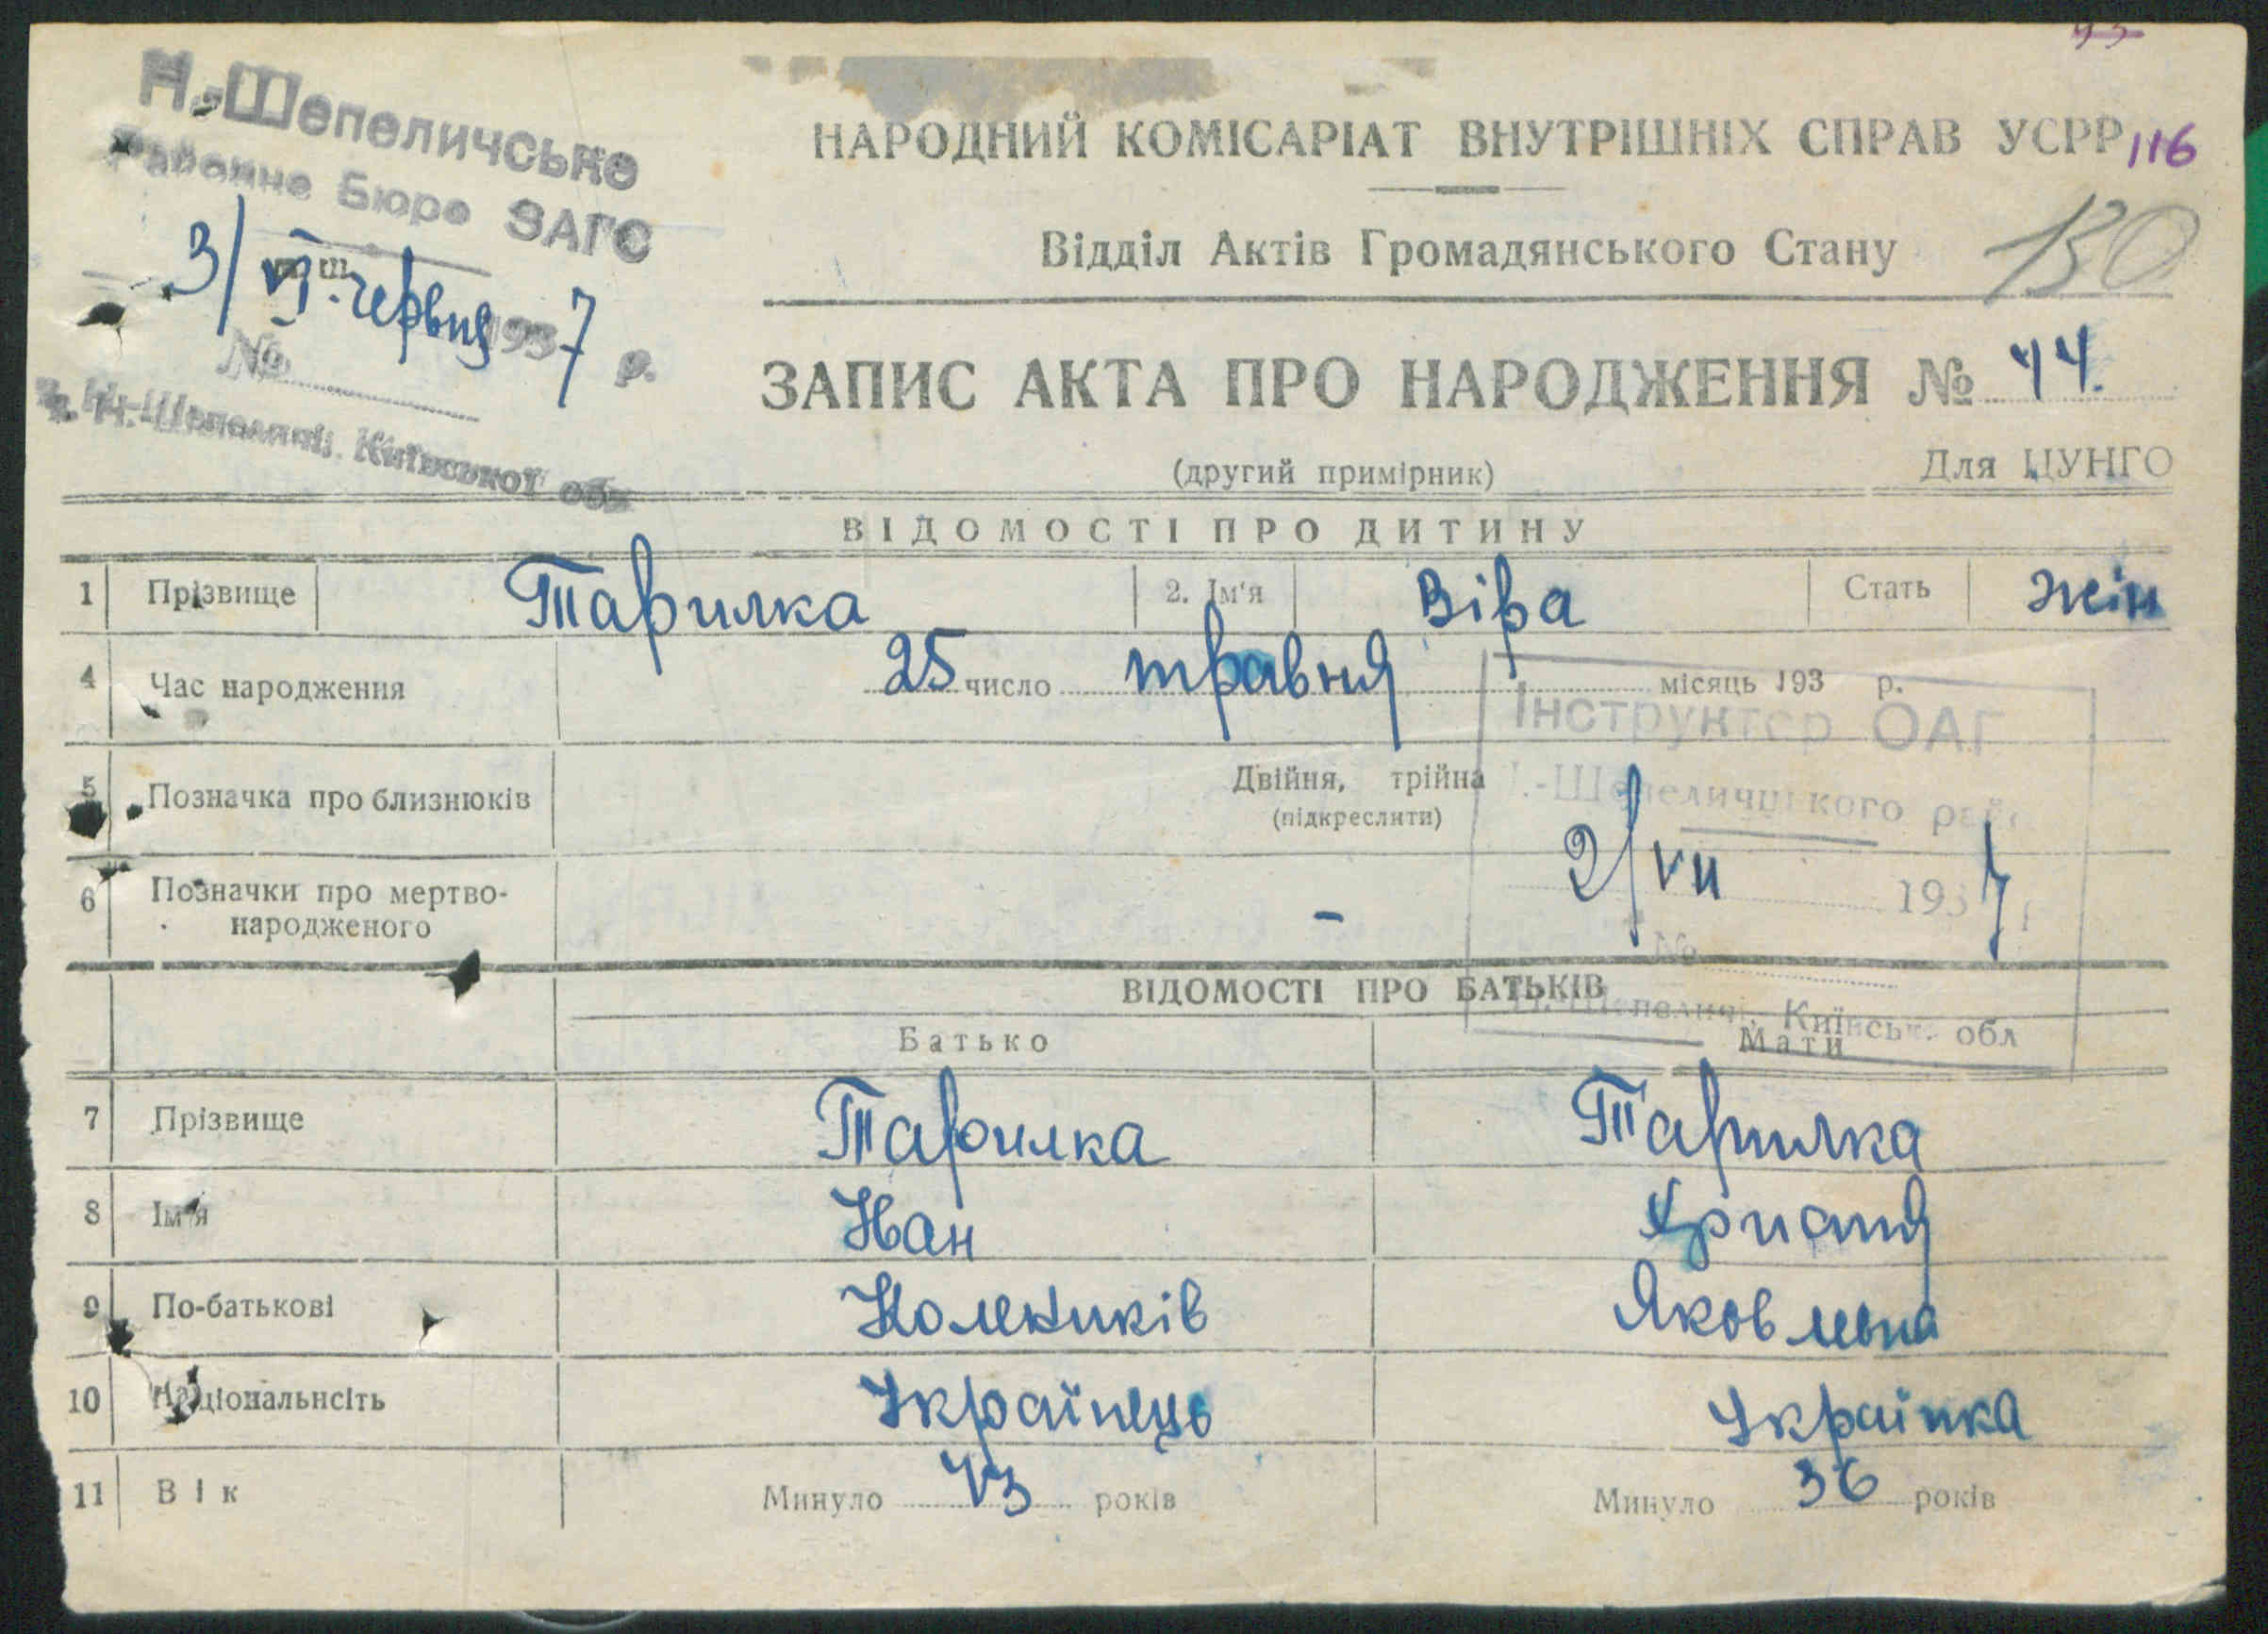 Н.-Шепеличське
Районне Бюро ЗАГС
3/VI. червня 1937 р.
№
Н.-Шепеличі, Київської обл
116
НАРОДНИЙ КОМІСАРІАТ ВНУТРІШНІХ СПРАВ УСРР
Відділ Актів Громадянського Стану
130
ЗАПИС АКТА ПРО НАРОДЖЕННЯ № 44.
(другий примірник)
Для ЦУНГО
ВІДОМОСТІ ПРО ДИТИНУ
1 Прізвище Тарилка 2. Ім'я Віра Стать жін
4 Час народження 25 число травня місяць 193 р.
Інструктор ОАГ
5 Позначка про близнюків Двійня, трійна
(підкреслити)
.-Шепеличського рай
2/VII 1937 р
6 Позначки про мертво-
народженого -
№
ВІДОМОСТІ ПРО БАТЬКІВ
Н.-Шепеличі, Київськ. обл
Батько Мати
7 Прізвище Тарилка Тарилка
8 Ім'я Іван Христя
9 По-батькові Яковлевна
10 Національнсіть Українець Українка
11 Вік Минуло 43 років Минуло 36 років